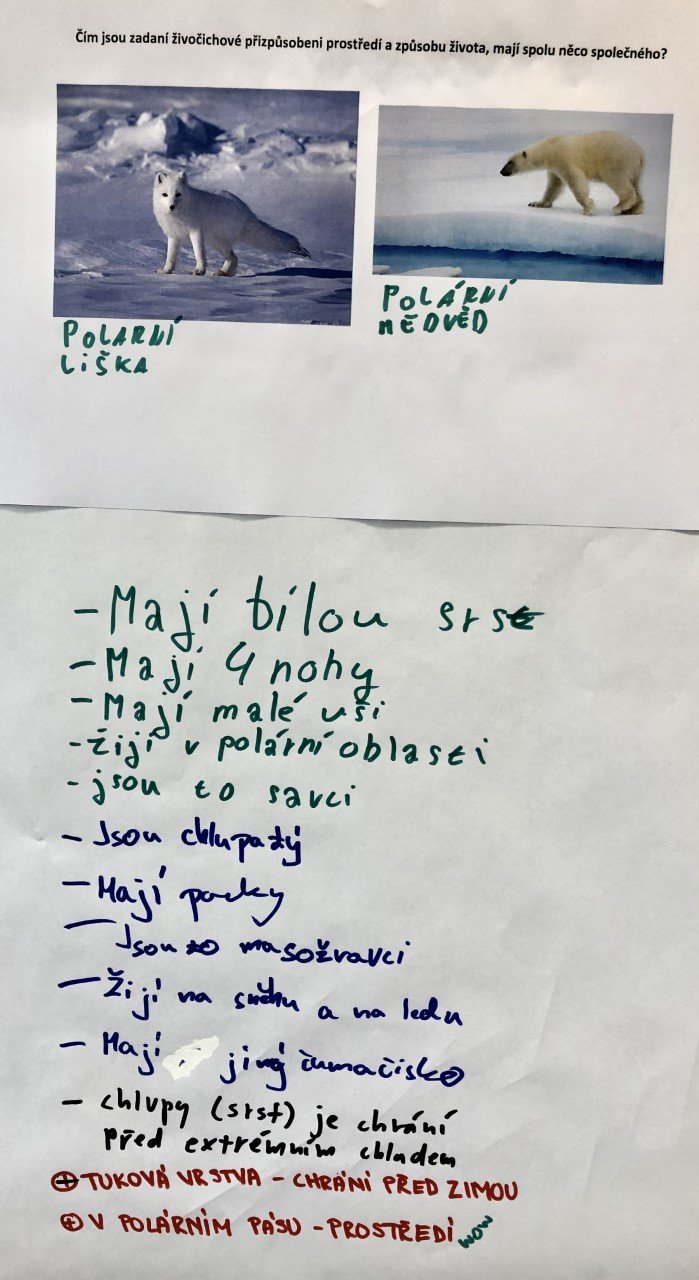 Čím jsou zadaní živočichové přizpůsobeni prostředí a způsobu života, mají spolu něco společného?
POLARNÍ
LIŠKA
POLÁRNÍ
MEDVĚD
- Mají bílou srst
- Mají 4 nohy
- Mají malé uši
- žijí v polární oblasti
- jsou to savci
- Jsou chlupatý
- Mají packy
- Jsou to masožravci
- Žijí na sněhu a na ledu
- Mají jiný čumáčisko
- chlupy (srst) je chrání
před extrémním chladem
⊕ TUKOVÁ VRSTVA - CHRÁNÍ PŘED ZIMOU
⊕ V POLÁRNÍM PÁSU - PROSTŘEDÍ WOW